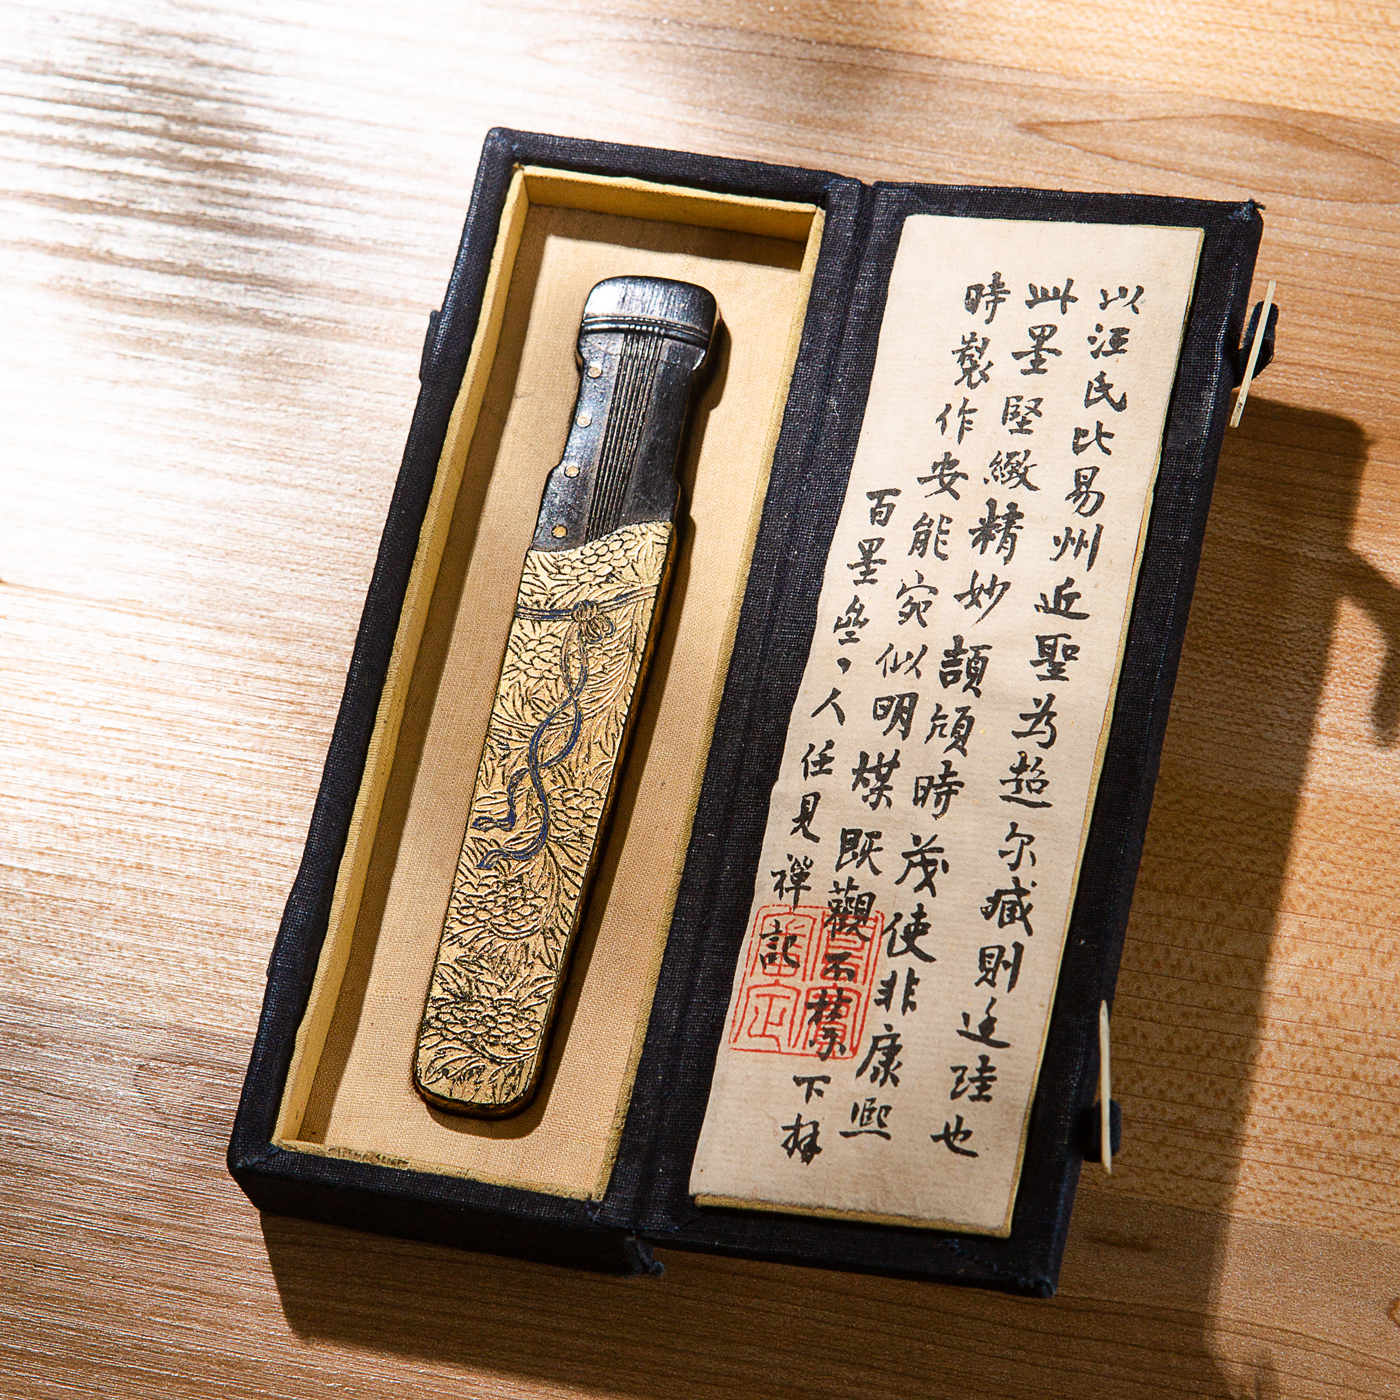 以汪氏比易州近聖為超尔臧則逕陸也
此墨堅緻精妙頡頏時茂使非康熙
時製作安能宛似明煤既觀不禁下拜
百墨壘人任見禪記